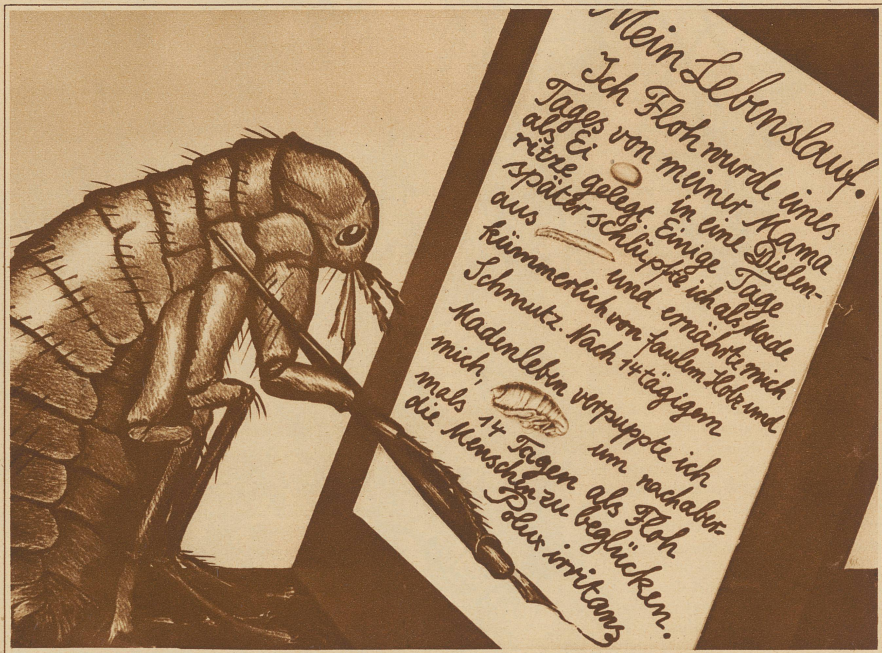 Mein Lebenslauf.
Ich Floh wurde eines
Tages von meiner Mama
als Ei in eine Dielen-
ritze gelegt. Einige Tage
später schlüpfte ich als Made
aus und ernährte mich
kümmerlich von faulem Holz und
Schmutz. Nach 14tägigem
Madenleben verpuppte ich
mich, um nachaber-
mals 14 Tagen als Floh
die Menschen zu beglücken.
Polux irritans